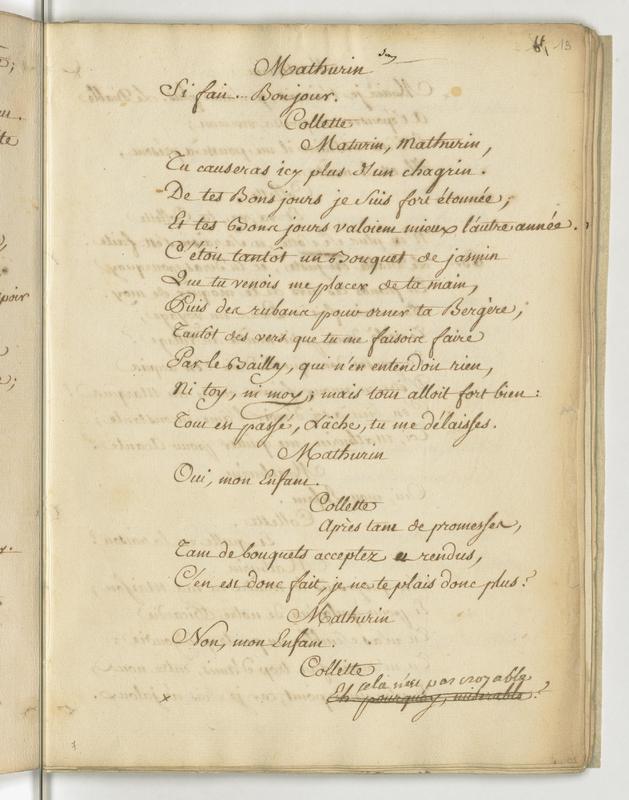 13
Mathurin
Si fait... Bonjour.
Collette
Maturin, Mathurin,
Tu causeras icy plus d'un chagrin.
De tes Bons jours je suis fort étonnée;
Et tes Bons jours valoient mieux l'autre année.
C'étoit tantôt un Bouquet de jasmin
Que tu venois me placer de ta main,
Puis des rubans pour orner ta Bergère;
Tantôt des vers que tu me faisois faire
Par le Bailly, qui n'en entendoit rien,
Ni toy, ni moy; mais tout alloit fort bien:
Tout est passé, Lâche, tu me délaisses.
Mathurin
Oui, mon Enfant.
Collette
Après tant de promesses,
Tant de bouquets acceptez et rendus,
C'en est donc fait, je ne te plais donc plus?
Mathurin
Non, mon Enfant.
Collette
cela n'est pas croyable
Eh pourquoy, misérable?